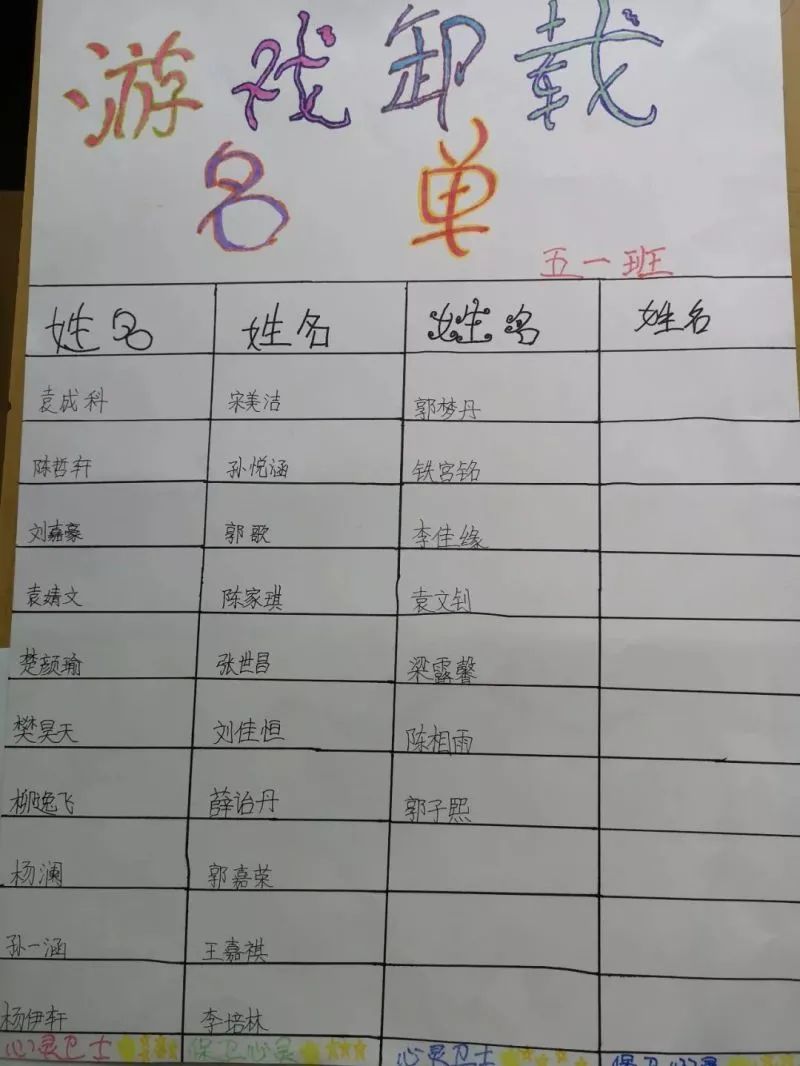 游戏卸载
名单
五一班
姓名 姓名 姓名 姓名
袁成科 宋美洁 郭梦丹
陈哲轩 孙悦涵 铁宫铭
刘嘉豪 郭歌 李佳缘
袁婧文 陈家琪 袁文钊
楚颜瑜 张世昌 梁露馨
樊昊天 刘佳恒 陈相雨
柳逸飞 薛诒丹 郭子熙
杨澜 郭嘉荣
孙一涵 王嘉祺
杨伊轩 李培林
心灵卫士 保卫心灵 心灵卫士 保卫心灵